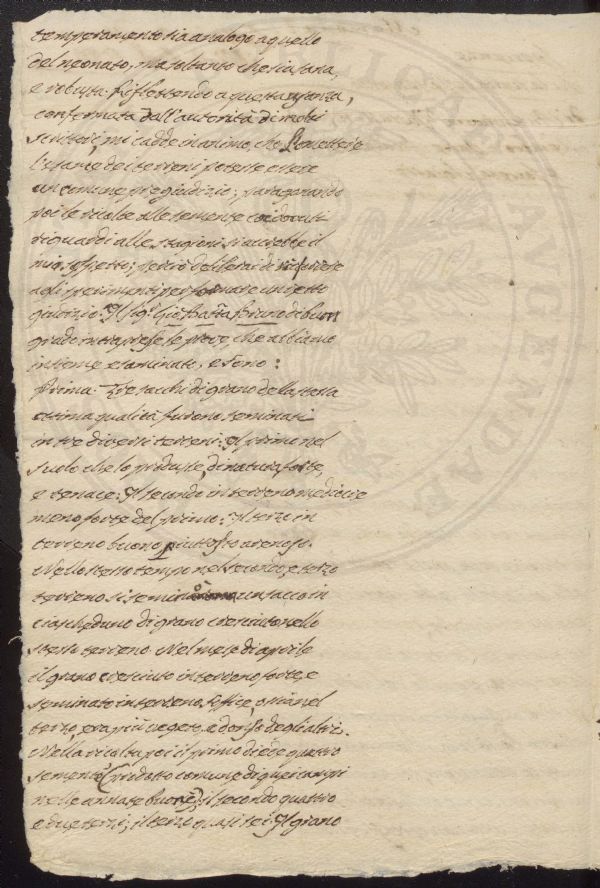 temperamento sia analogo a quello
del neonato, ma soltanto che sia sana,
e robusta. Riflettendo a questa usanza,
confermata dall'autorità di molti
scrittori, mi cadde in animo, che
l'usanza dei terreni potesse essere
un comune pregiudizio; paragonando
poi le ricolte alle semente coi dovuti
riguardi alle stagioni si accrebbe il
mio sospetto; perciò deliberai di
agli sperimenti per formare un retto
giudizio. Il Sig.r Gio. Batta Bruno di buon
grado intraprese le prove, che abbiamo
insieme esaminato, e sono:
Prima. Tre sacchi di grano della stessa
ottima qualità furono seminati
in tre diversi terreni. Il primo nel
suolo che lo produsse, di natura forte,
e tenace: Il secondo in terreno mediocre
meno forte del primo: Il terzo in
terreno buono piuttosto arenoso.
Nello stesso tempo nel secondo, e terzo
terreno si seminò un sacco in
ciascheduno di grano cresciuto nello
stesso terreno. Nel mese di aprile
il grano cresciuto in terreno forte, e
seminato in terreno soffice, ossia nel
terzo, era più vegeto, e denso degli altri.
Nella ricolta poi il primo diede quattro
sementi (prodotto comune di quei campi
nelle annate buone); il secondo quattro
e due terzi; il terzo quasi sei. Il grano